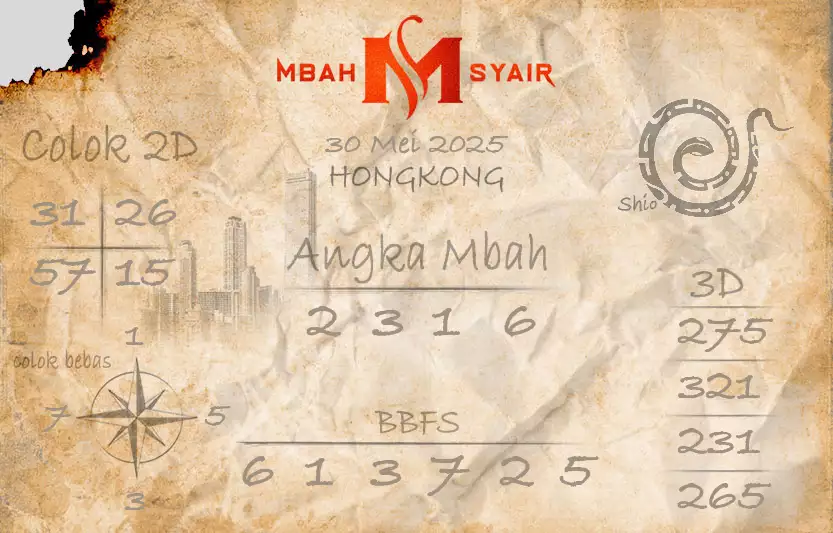 MBAH M SYAIR
30 Mei 2025
HONGKONG
Colok 2D
31 26
57 15
Shio
Angka Mbah
2 3 1 6
3D
275
321
231
265
colok bebas
1
7 5
3
BBFS
6 1 3 7 2 5